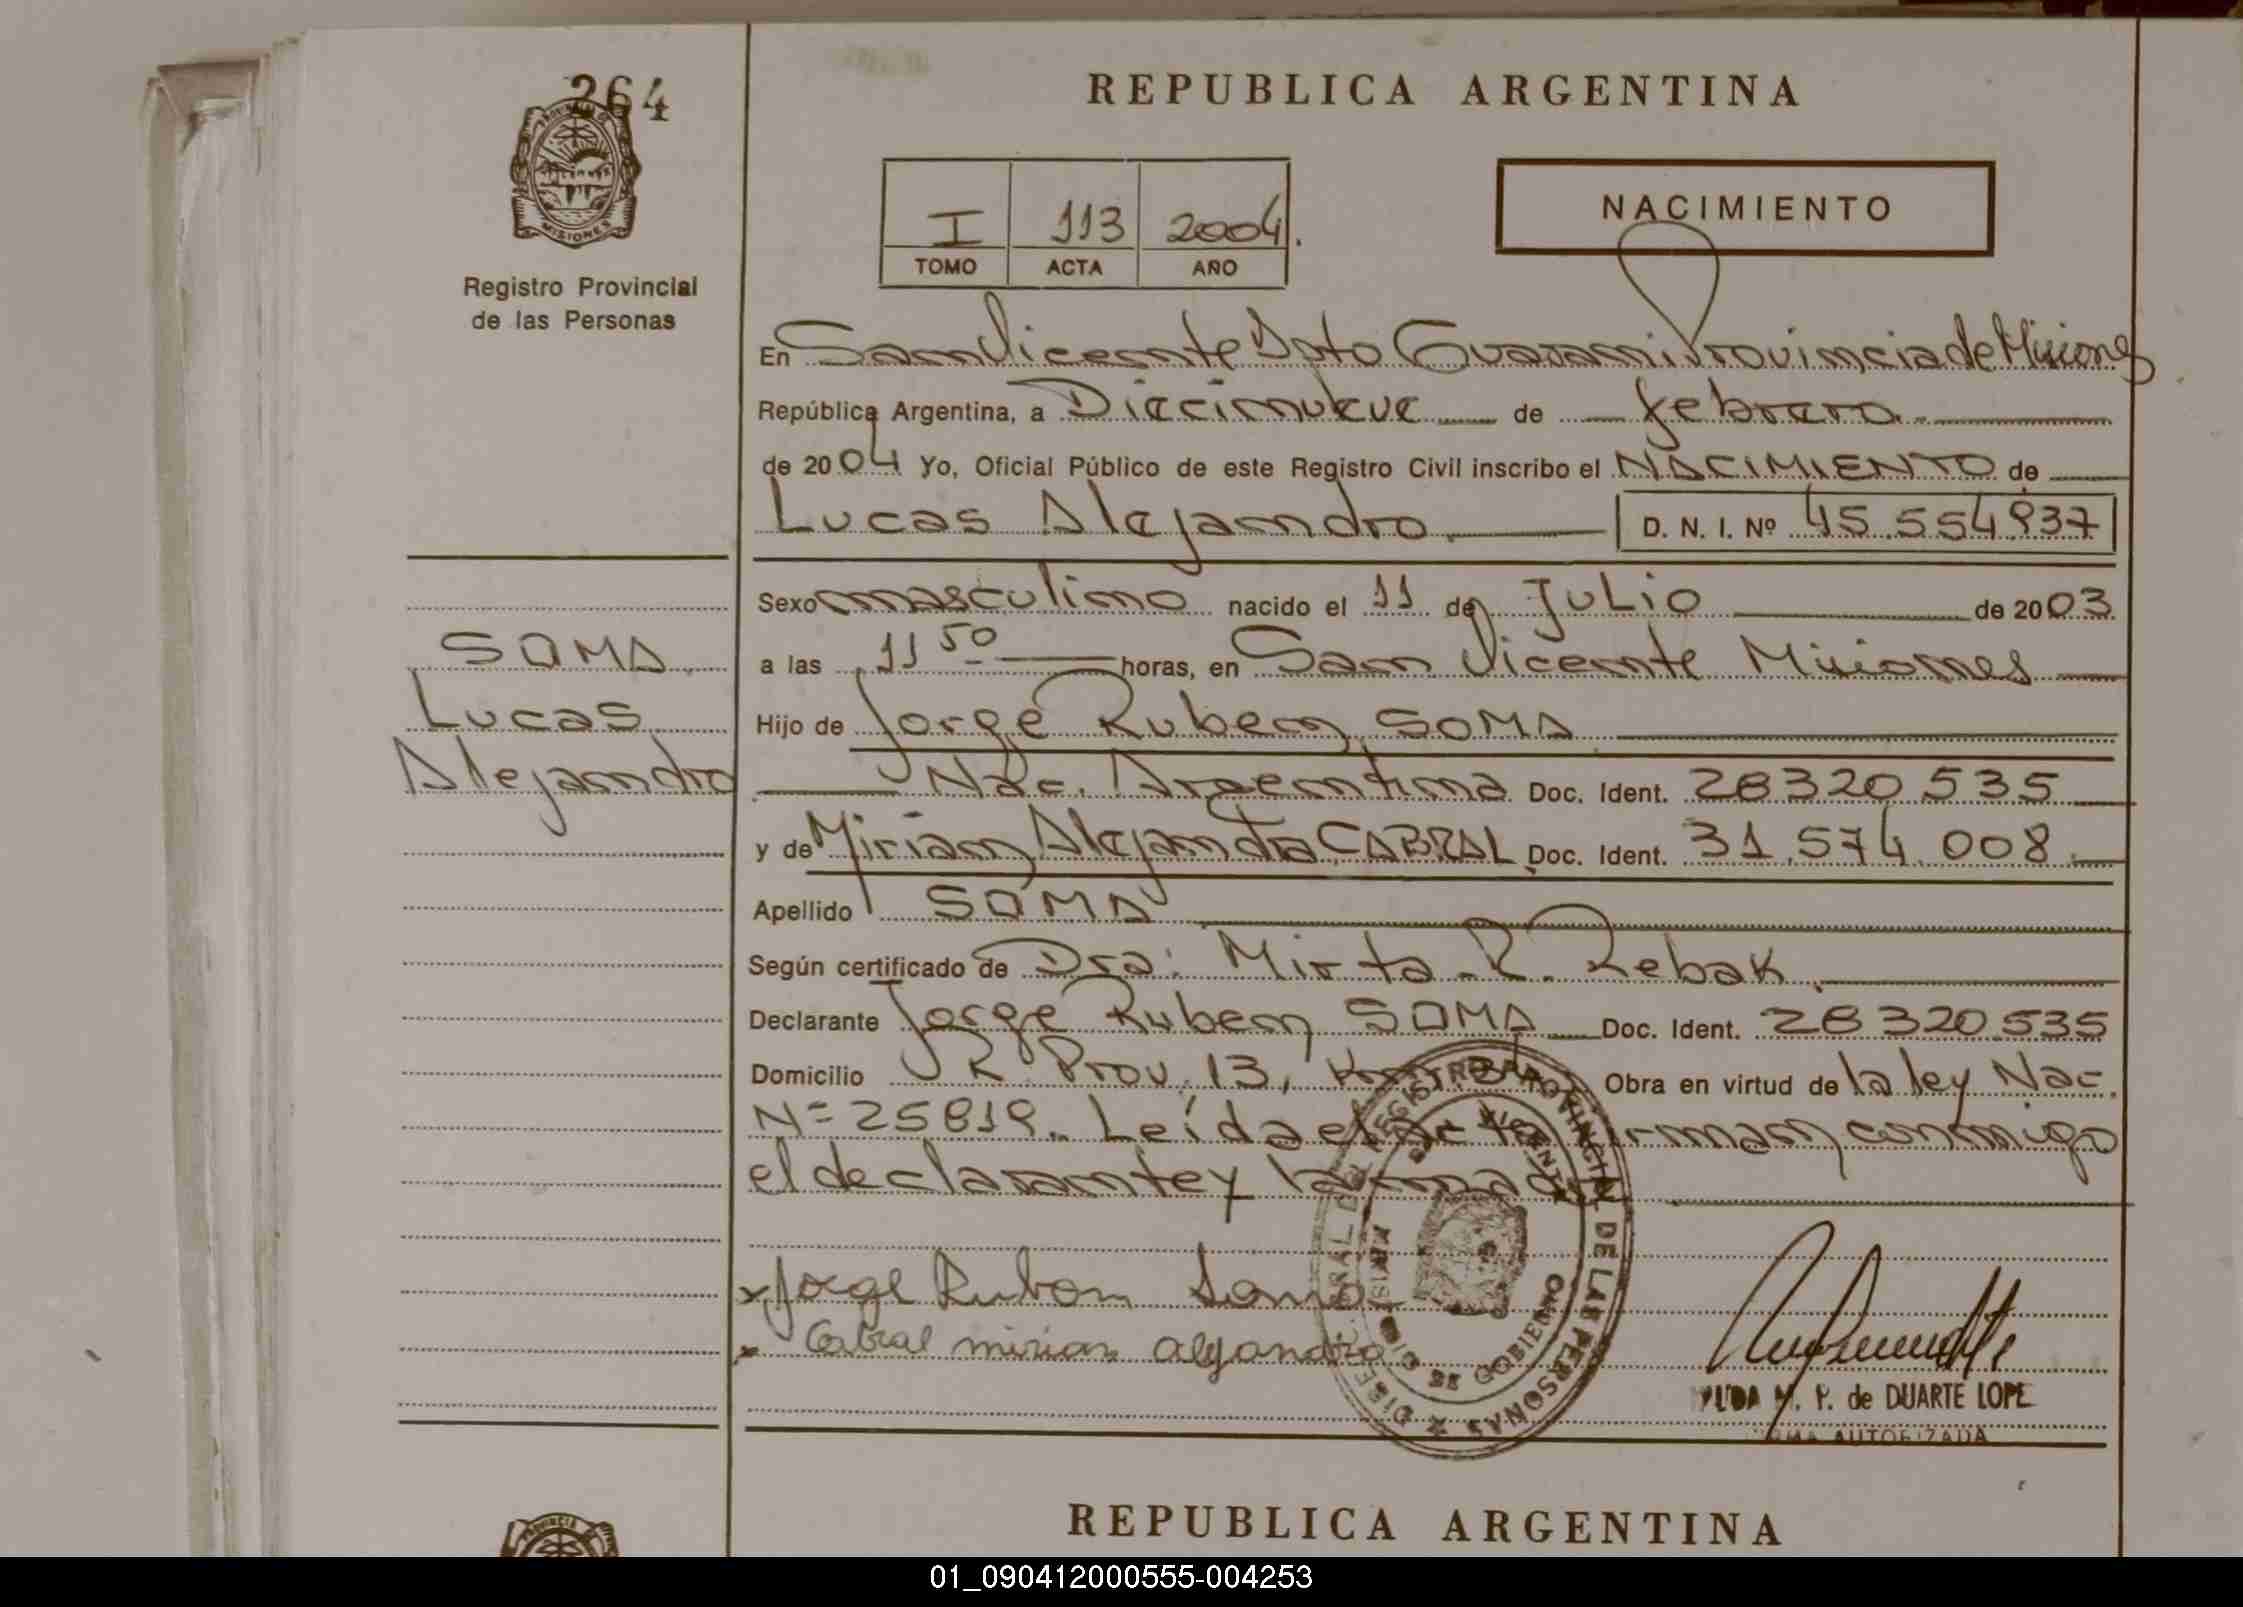 264
REPUBLICA ARGENTINA
PROVINCIA DE
MISIONES
Registro Provincial
de las Personas
I 113 2004.
TOMO ACTA AÑO
NACIMIENTO
En San Vicente Dpto Guarani Provincia de Misiones
República Argentina, a Diecinueve de febrero
de 2004 Yo, Oficial Público de este Registro Civil inscribo el NACIMIENTO de
Lucas Alejandro D. N. I. Nº 45.554.937
Sexo masculino nacido el 11 de Julio de 2003
a las 11 50 horas, en San Vicente Misiones
Hijo de Jorge Ruben SOMA
Nac. Argentina Doc. Ident. 28320535
y de Miriam Alejandra CABRAL Doc. Ident. 31.574.008
Apellido SOMA
Según certificado de Dra: Mirta R. Rebak
Declarante Jorge Ruben SOMA Doc. Ident. 28320535
Domicilio R. Prov. 13, Obra en virtud de la ley Nac.
Nº 25819. Leída el acta firman conmigo
el declarante y la madre
SOMA
Lucas
Alejandro
x Jorge Ruben Soma
x Cabral mirian alejandra
REGISTRO PROVINCIAL DE LAS PERSONAS
MINISTERIO DE GOBIERNO
M. P. de DUARTE LOPE
FIRMA AUTORIZADA
REPUBLICA ARGENTINA
PROVINCIA
01_090412000555-004253